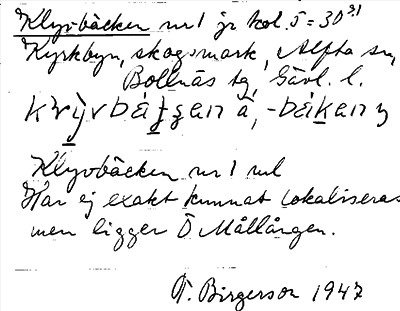 Klyvbäcken nr 1 jr kol. 5 = 30
Kyrkbyn, skogsmark, Alfta sn,
Bollnäs tg, Gävl. l.
Klyvbäcken nr 1 ml
Har ej exakt kunnat lokaliseras
men ligger Ö Mållången.
T. Birgerson 1947